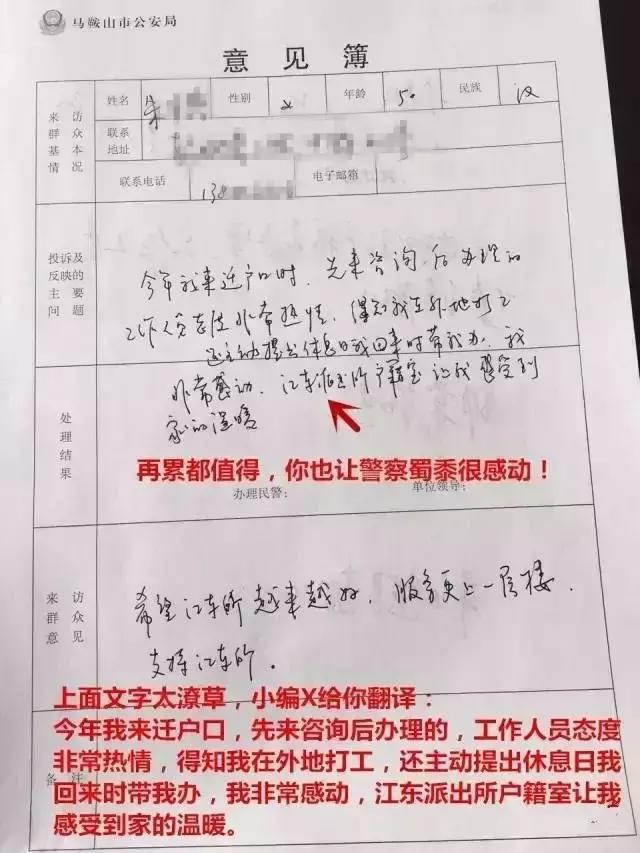 马鞍山市公安局
意见簿
来访群众基本情况
姓名 朱 性别 女 年龄 50 民族 汉
联系地址
联系电话 138 电子邮箱
投诉及反映的主要问题
今年我来迁户口时,先来咨询后办理的
工作人员态度非常热情,得知我在外地打工
还主动提出休息日我回来时带我办,我
非常感动,江东派出所户籍室让我感受到
家的温暖
处理结果
再累都值得,你也让警察蜀黍很感动!
办理民警: 单位领导:
来访群众意见
希望江东所越来越好,服务更上一层楼,
支持江东所。
备注
上面文字太潦草,小编X给你翻译:
今年我来迁户口,先来咨询后办理的,工作人员态度
非常热情,得知我在外地打工,还主动提出休息日我
回来时带我办,我非常感动,江东派出所户籍室让我
感受到家的温暖。